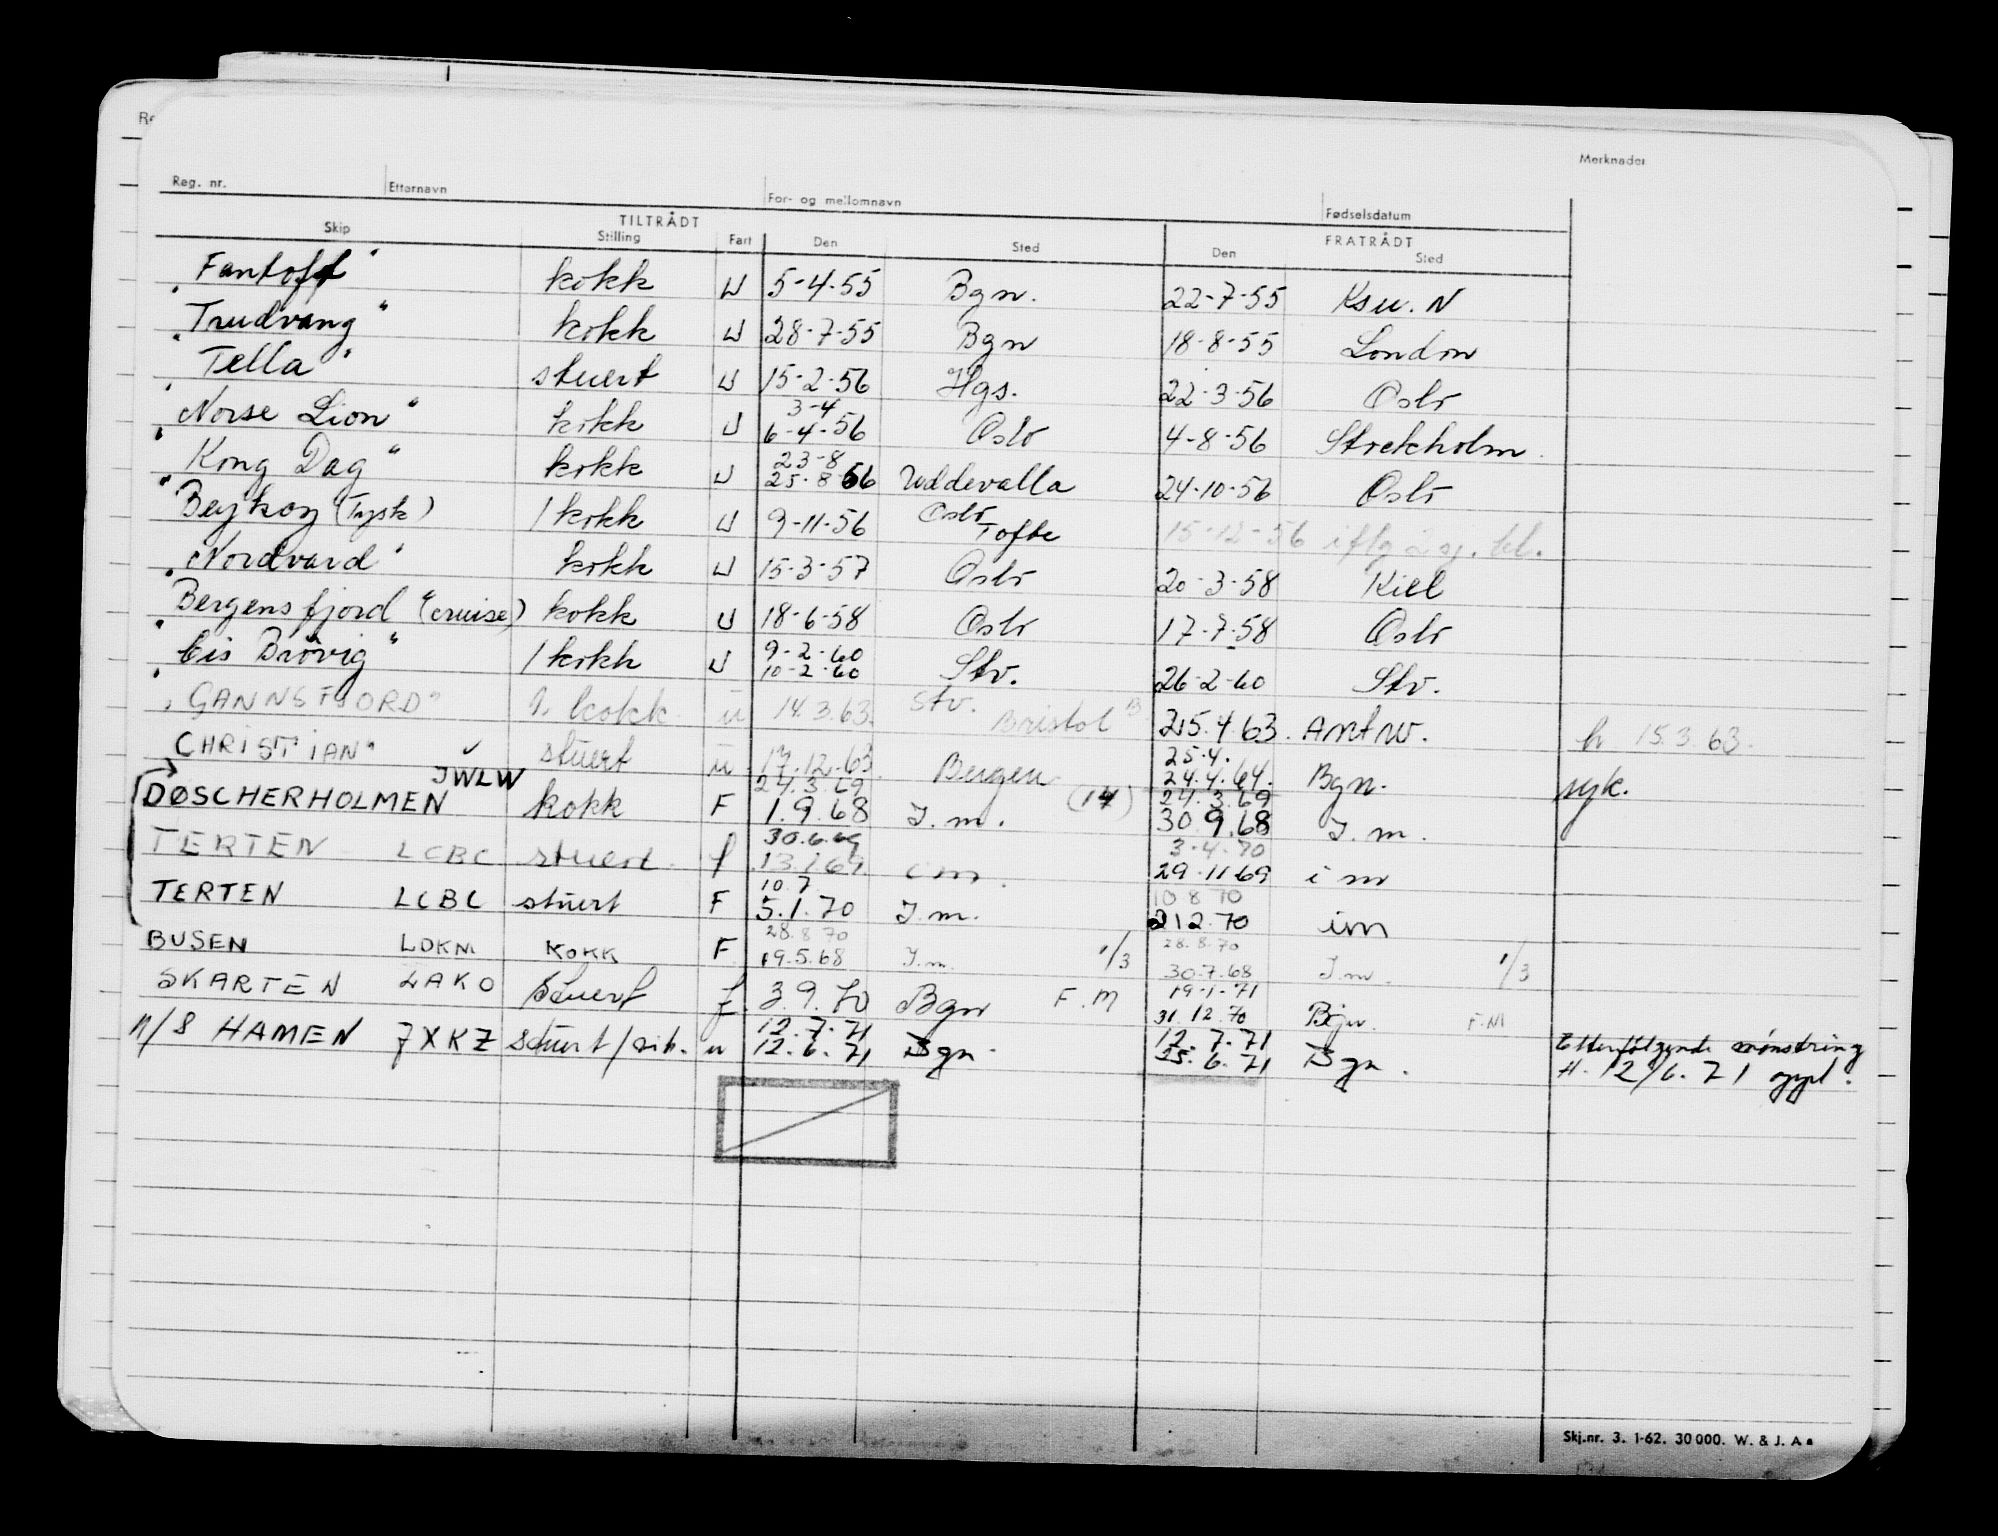 Merknader
Reg. nr. Etternavn For- og mellomnavn Fødselsdatum
TILTRÅDT FRATRÅDT
Skip Stilling Fart Den Sted Den Sted
"Fantoft" kokk U 5-4-55 Bgn. 22-7-55 Ksu. N
"Trudvang" kokk U 28-7-55 Bgn 18-8-55 London
"Tella" stuert U 15-2-56 Hgs. 22-3-56 Oslo
3-4
"Norse Lion" kokk U 6-4-56 Oslo 4-8-56 Stockholm
23-8
"Kong Dag" kokk U 25-8-56 Uddevalla 24-10-56 Oslo
(Tysk) 1 kokk U 9-11-56 Oslo Tofte 15-12-56 iflg
"Nordvard" kokk U 15-3-57 Oslo 20-3-58 Kiel
"Bergensfjord" (cruise) kokk U 18-6-58 Oslo 17-7-58 Oslo
9-2-60
"Cis Brøvig" 1 kokk U 10-2-60 Stv. 26-2-60 Stv.
"GANNSFJORD" kokk u 14.3.63. Stv. Bristol 25.4.63. Antw. h 15.3.63.
25.4.
CHRISTIAN" stuert u 17.12.63. Bergen 24.4.64. Bgn. syk.
JWLW 24.3.69 (14) 24.3.69
DØSCHERHOLMEN kokk F 1.9.68 I.m. 30.9.68 I.m.
30.6.69 3-4-70
TERTEN LCBC stuert f 13.1.69 i m. 29.11.69 i m
10.7. 10 8 70
TERTEN LCBC stuert F 5.1.70 I.m. 212.70 im
28.8.70 28.8.70
BUSEN LDKM KOKK F 19.5.68 I.m. 1/3 30.7.68 I.m. 1/3
19-1-71
SKARTEN LAKO Stuert f. 3.9.70 Bgn F.M 31.12.70 Bgn. F.M
12.7.71 12.7.71 Etterfølgende mønstring
M/S HAMEN JXKZ stuert/ u 12.6.71 Bgn. 25.6.71 Bgn. 12/6.71 oppl.
Skj.nr. 3. 1-62. 30 000. W. & J. A s